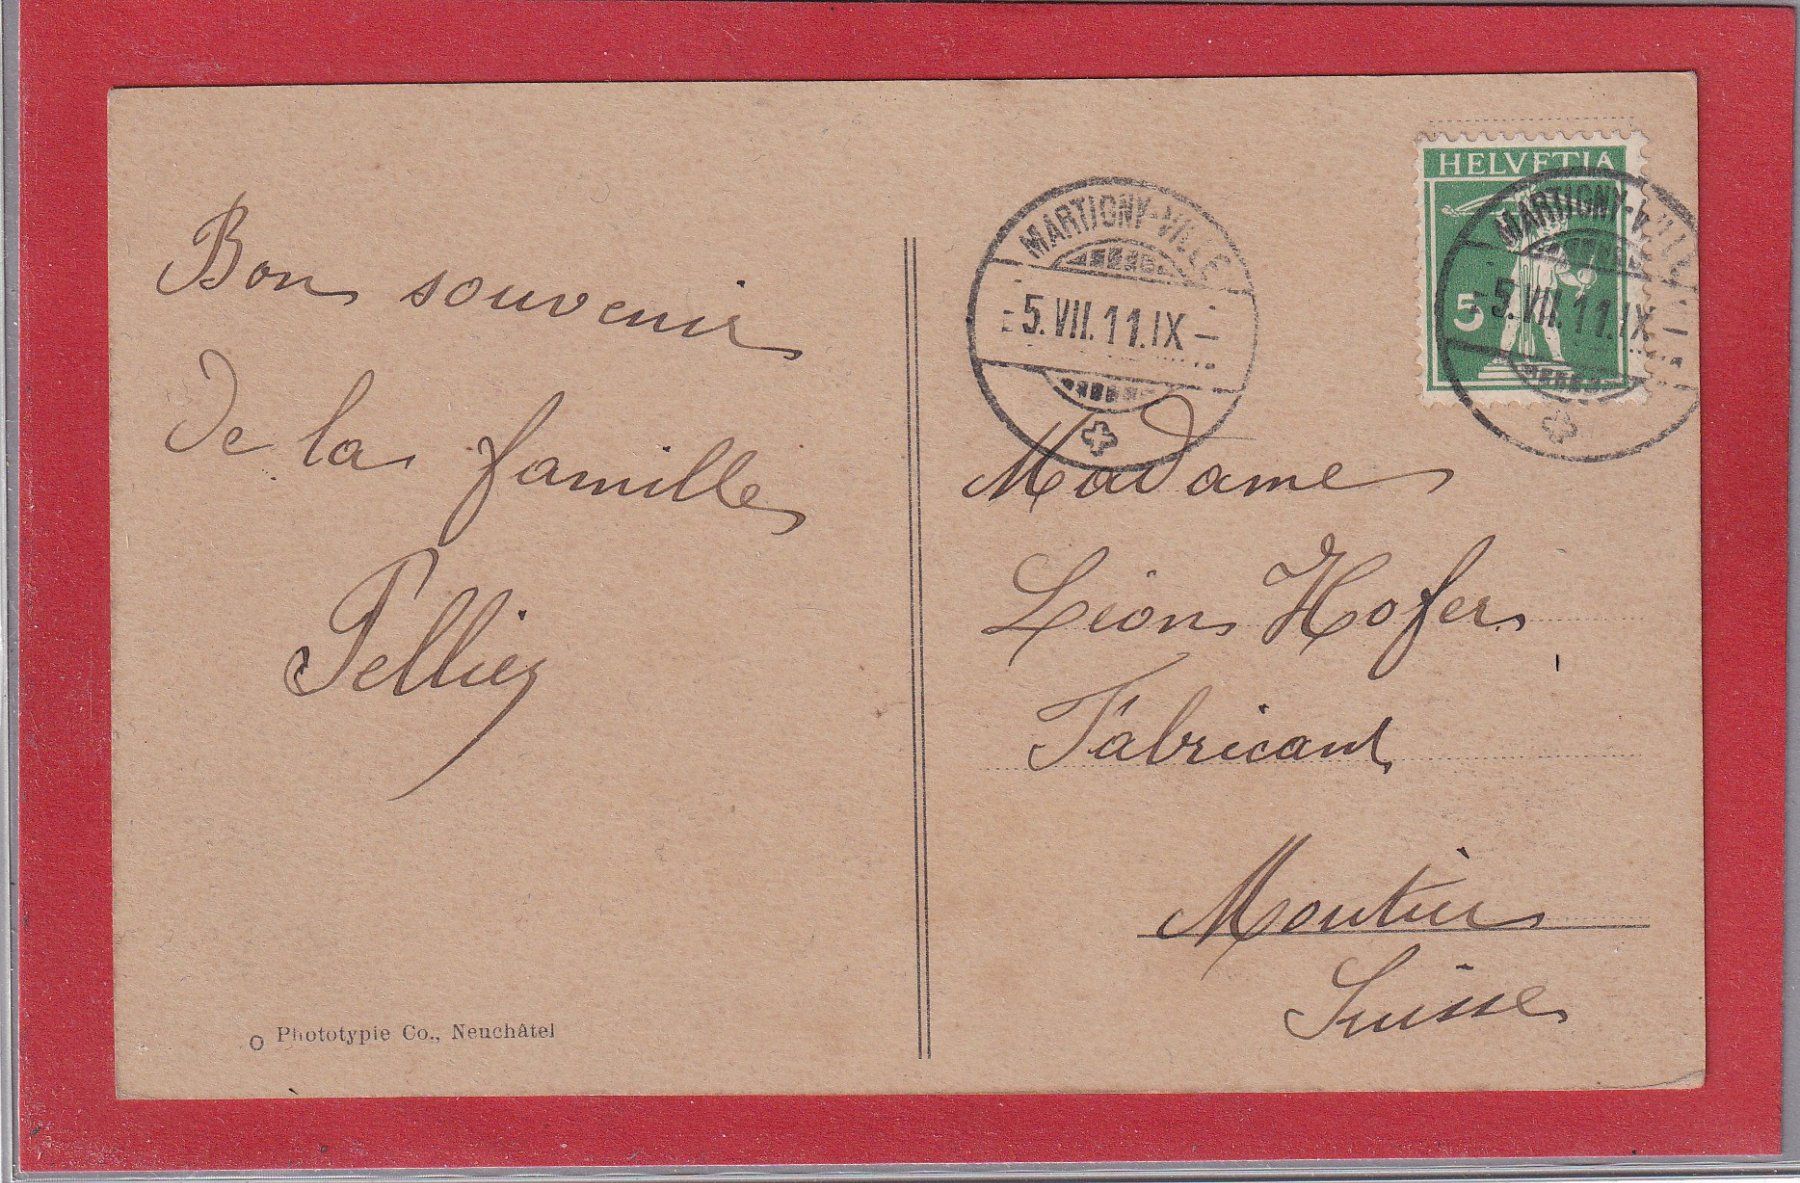 Bon souvenir
de la famille
Pellier
Phototypie Co., Neuchâtel
MARTIGNY-VILLE
5.VII.11.IX
HELVETIA
5
MARTIGNY-VILLE
5.VII.11.IX
Madame
Léon Hofer
Fabricant
Moutier
Suisse